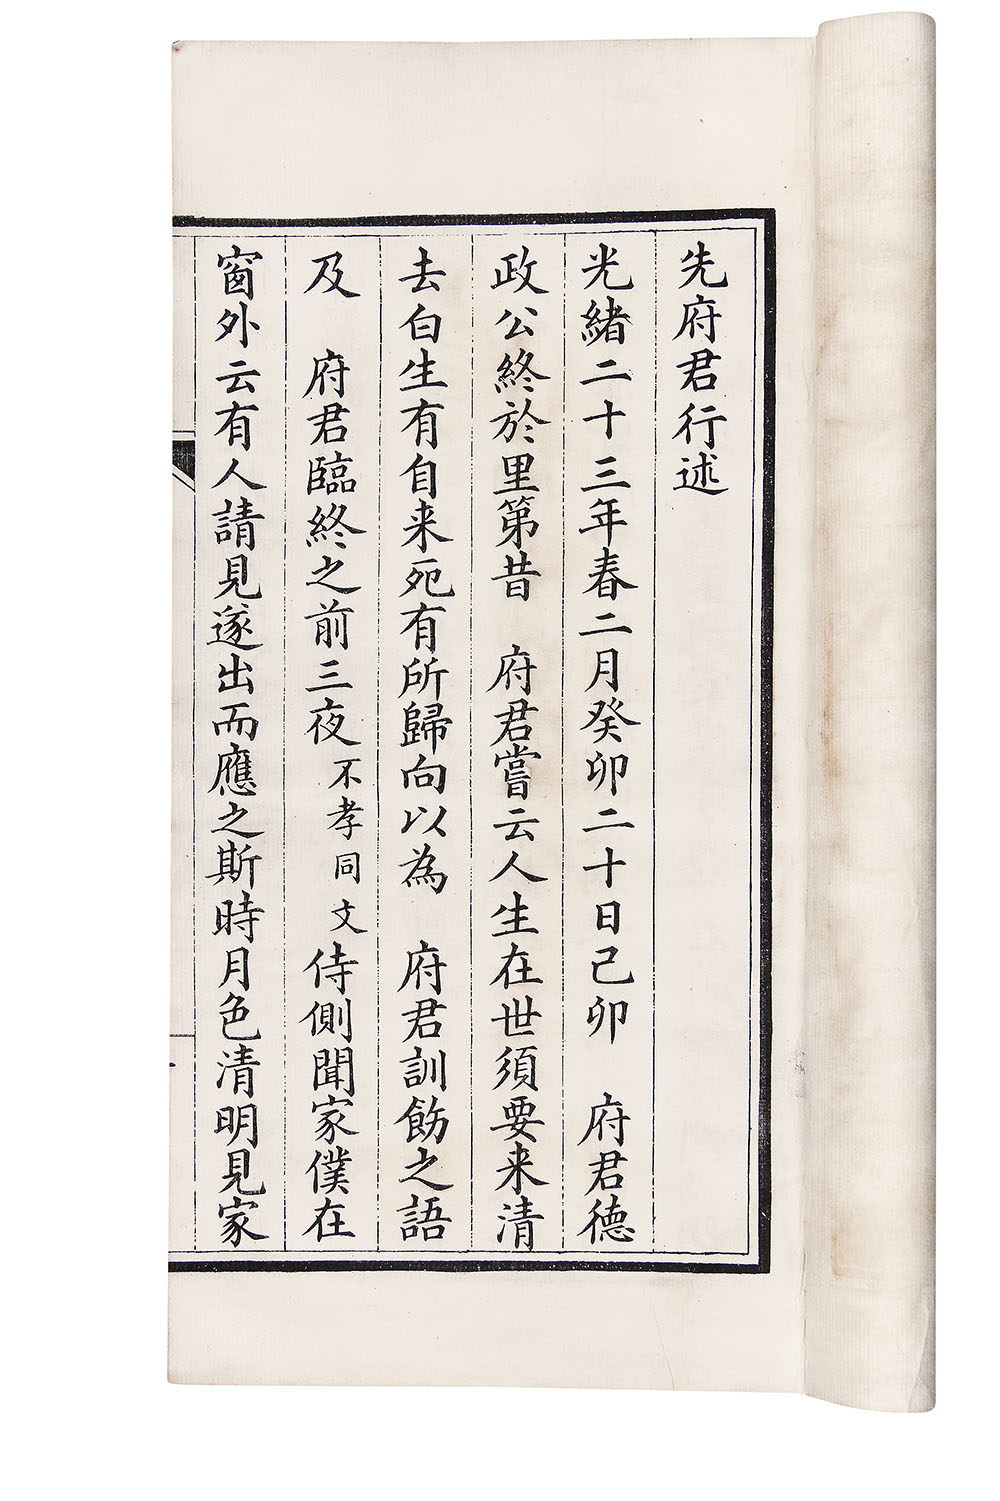 先府君行述
光緒二十三年春二月癸卯二十日己卯　府君德
政公終於里第昔　府君嘗云人生在世須要来清
去白生有自来死有所歸向以為　府君訓飭之語
及　府君臨終之前三夜不孝同文侍側聞家僕在
窗外云有人請見遂出而應之斯時月色清明見家